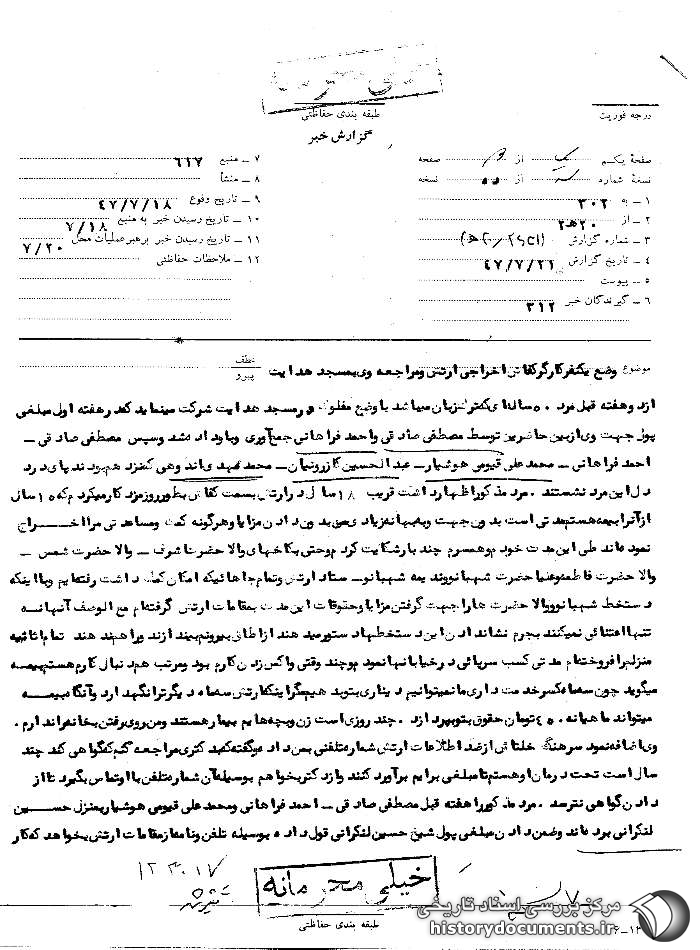 طبقه بندی حفاظتی
درجه فوریت
گزارش خبر
صفحهٔ یکم یک از صفحه
نسخهٔ شماره از نسخه
۱ ـ به ۳۰۲
۲ ـ از ۲۰هـ۲
۳ ـ شماره گزارش
۴ ـ تاریخ گزارش ۴۷/۷/۲۱
۵ ـ پیوست
۶ ـ گیرندگان خبر ۳۱۲
۷ ـ منبع ۶۱۷
۸ ـ منشأ
۹ ـ تاریخ وقوع ۴۷/۷/۱۸
۱۰ ـ تاریخ رسیدن خبر به منبع ۷/۱۸
۱۱ ـ تاریخ رسیدن خبر برهبر عملیات محل ۷/۲۰
۱۲ ـ ملاحظات حفاظتی
موضوع وضع یکنفر کارگر کفاش اخراجی ارتش و مراجعه وی بمسجد هدایت
عطف
پیرو
از دو هفته قبل مردی ۵۰ ساله ای که ترک زبان میباشد با وضع مفلوک در مسجد هدایت شرکت مینماید که در هفته اولی مبلغی
پول جهت وی از بین حاضرین توسط مصطفی صادقی و احمد فراهانی جمع آوری و باو داده شد و سپس مصطفی صادقی ـ
احمد فراهانی ـ محمد علی قیومی هوشیار ـ عبدالحسین کازرونیان ـ محمد مهدی اند وهی که نزد هم بودند پای درد
دل این مرد نشستند . مرد مذکور اظهار داشت قریب ۱۸ سال در ارتش بسمت کفاش بطور روزمزد کار میکردم که ۱۰ سال
از آنرا بیمه هستم مدتی است بدون جهت و به بهانه زیادی سن بدون دادن مزایا و هرگونه کمک و مساعدتی مرا اخراج
نموده اند طی این مدت خودم و همسرم چند بار شکایت کردم و حتی بکاخهای والاحضرت اشرف ـ والاحضرت شمس ـ
والاحضرت فاطمه و علیاحضرت شهبانو و ندیمه شهبانو ـ ستاد ارتش و تمام جاهائیکه امکان کمک داشت رفته ایم و با اینکه
دستخط شهبانو و والاحضرت ها را جهت گرفتن مزایا و حقوقات این مدت بمقامات ارتش گرفته ام مع الوصف آنها نه
تنها اعتنائی نمیکنند بجرم نشان دادن این دستخطها دستور میدهند از اطاق بیرونم بیندازند و راهم ندهند تمام اثاثیه
منزلم را فروخته ام مدتی کسب سرپائی در خیابانها نمودم و چند وقتی واکس زدن کارم بود و مرتب هم دنبال کارم هستم بیمه
میگوید چون سه ماه کسر خدمت داری ما نمیتوانیم دیناری بتو بدهیم مگر اینکه ارتش سه ماه دیگر ترا نگهدارد و آنگاه بیمه
میتواند ماهیانه ۴۵۰ تومان حقوق بتو بپردازد . چند روزی است زن و بچه هایم بیمار هستند و من روی رفتن بخانه را ندارم .
وی اضافه نمود سرهنگ خلتاش از ضد اطلاعات ارتش شماره تلفنی بمن داده و گفته که بدکتری مراجعه کنم که گواهی کند چند
سال است تحت درمان او هستم تا مبلغی برایم برآورد کنند و از دکتر بخواهم بوسیله آن شماره تلفن با او تماس بگیرد تا از
دادن گواهی نترسد . مرد مذکور را هفته قبل مصطفی صادقی ـ احمد فراهانی و محمد علی قیومی هوشیار بمنزل حسین
لنکرانی برده اند و ضمن دادن مبلغی پول شیخ حسین لنکرانی قول داده بوسیله تلفن و نامه از مقامات ارتش بخواهد که کار
خیلی محرمانه
طبقه بندی حفاظتی
مرکز بررسی اسناد تاریخی
historydocuments.ir